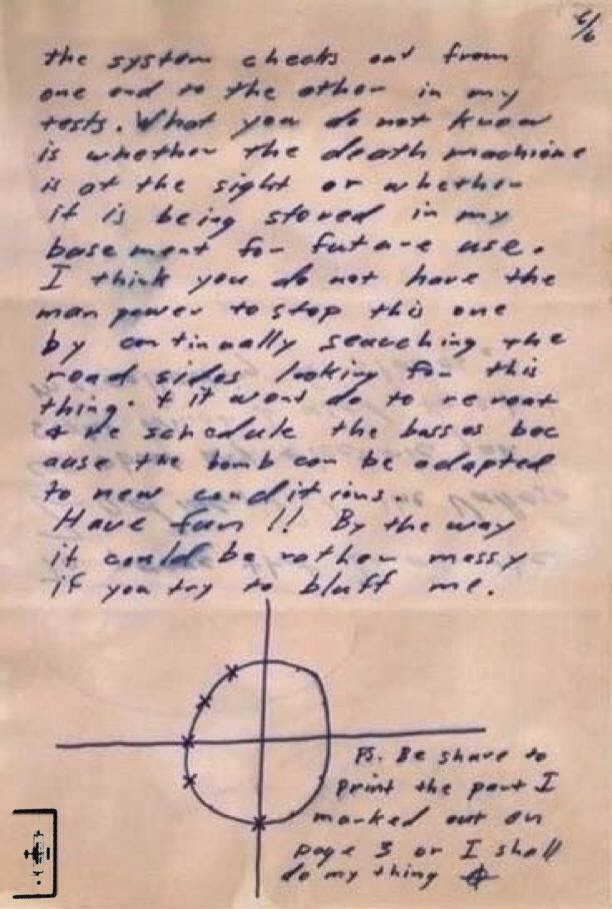 6/6
the system checks out from
one end to the other in my
tests. What you do not know
is whether the death machine
is at the sight or whether
it is being stored in my
basement for future use.
I think you do not have the
man power to stop this one
by continually searching the
road sides looking for this
thing. & it wont do to re roat
& re schedule the busses bec
ause the bomb can be adapted
to new conditions.
Have fun !! By the way
it could be rather messy
if you try to bluff me.
PS. Be shure to
print the part I
marked out on
page 3 or I shall
do my thing